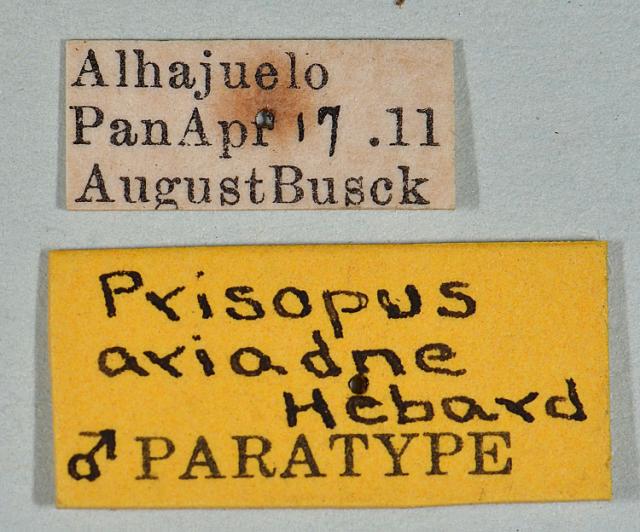 Alhajuelo
Pan Apr 17 .11
August Busck
Prisopus
ariadne
Hebard
♂ PARATYPE